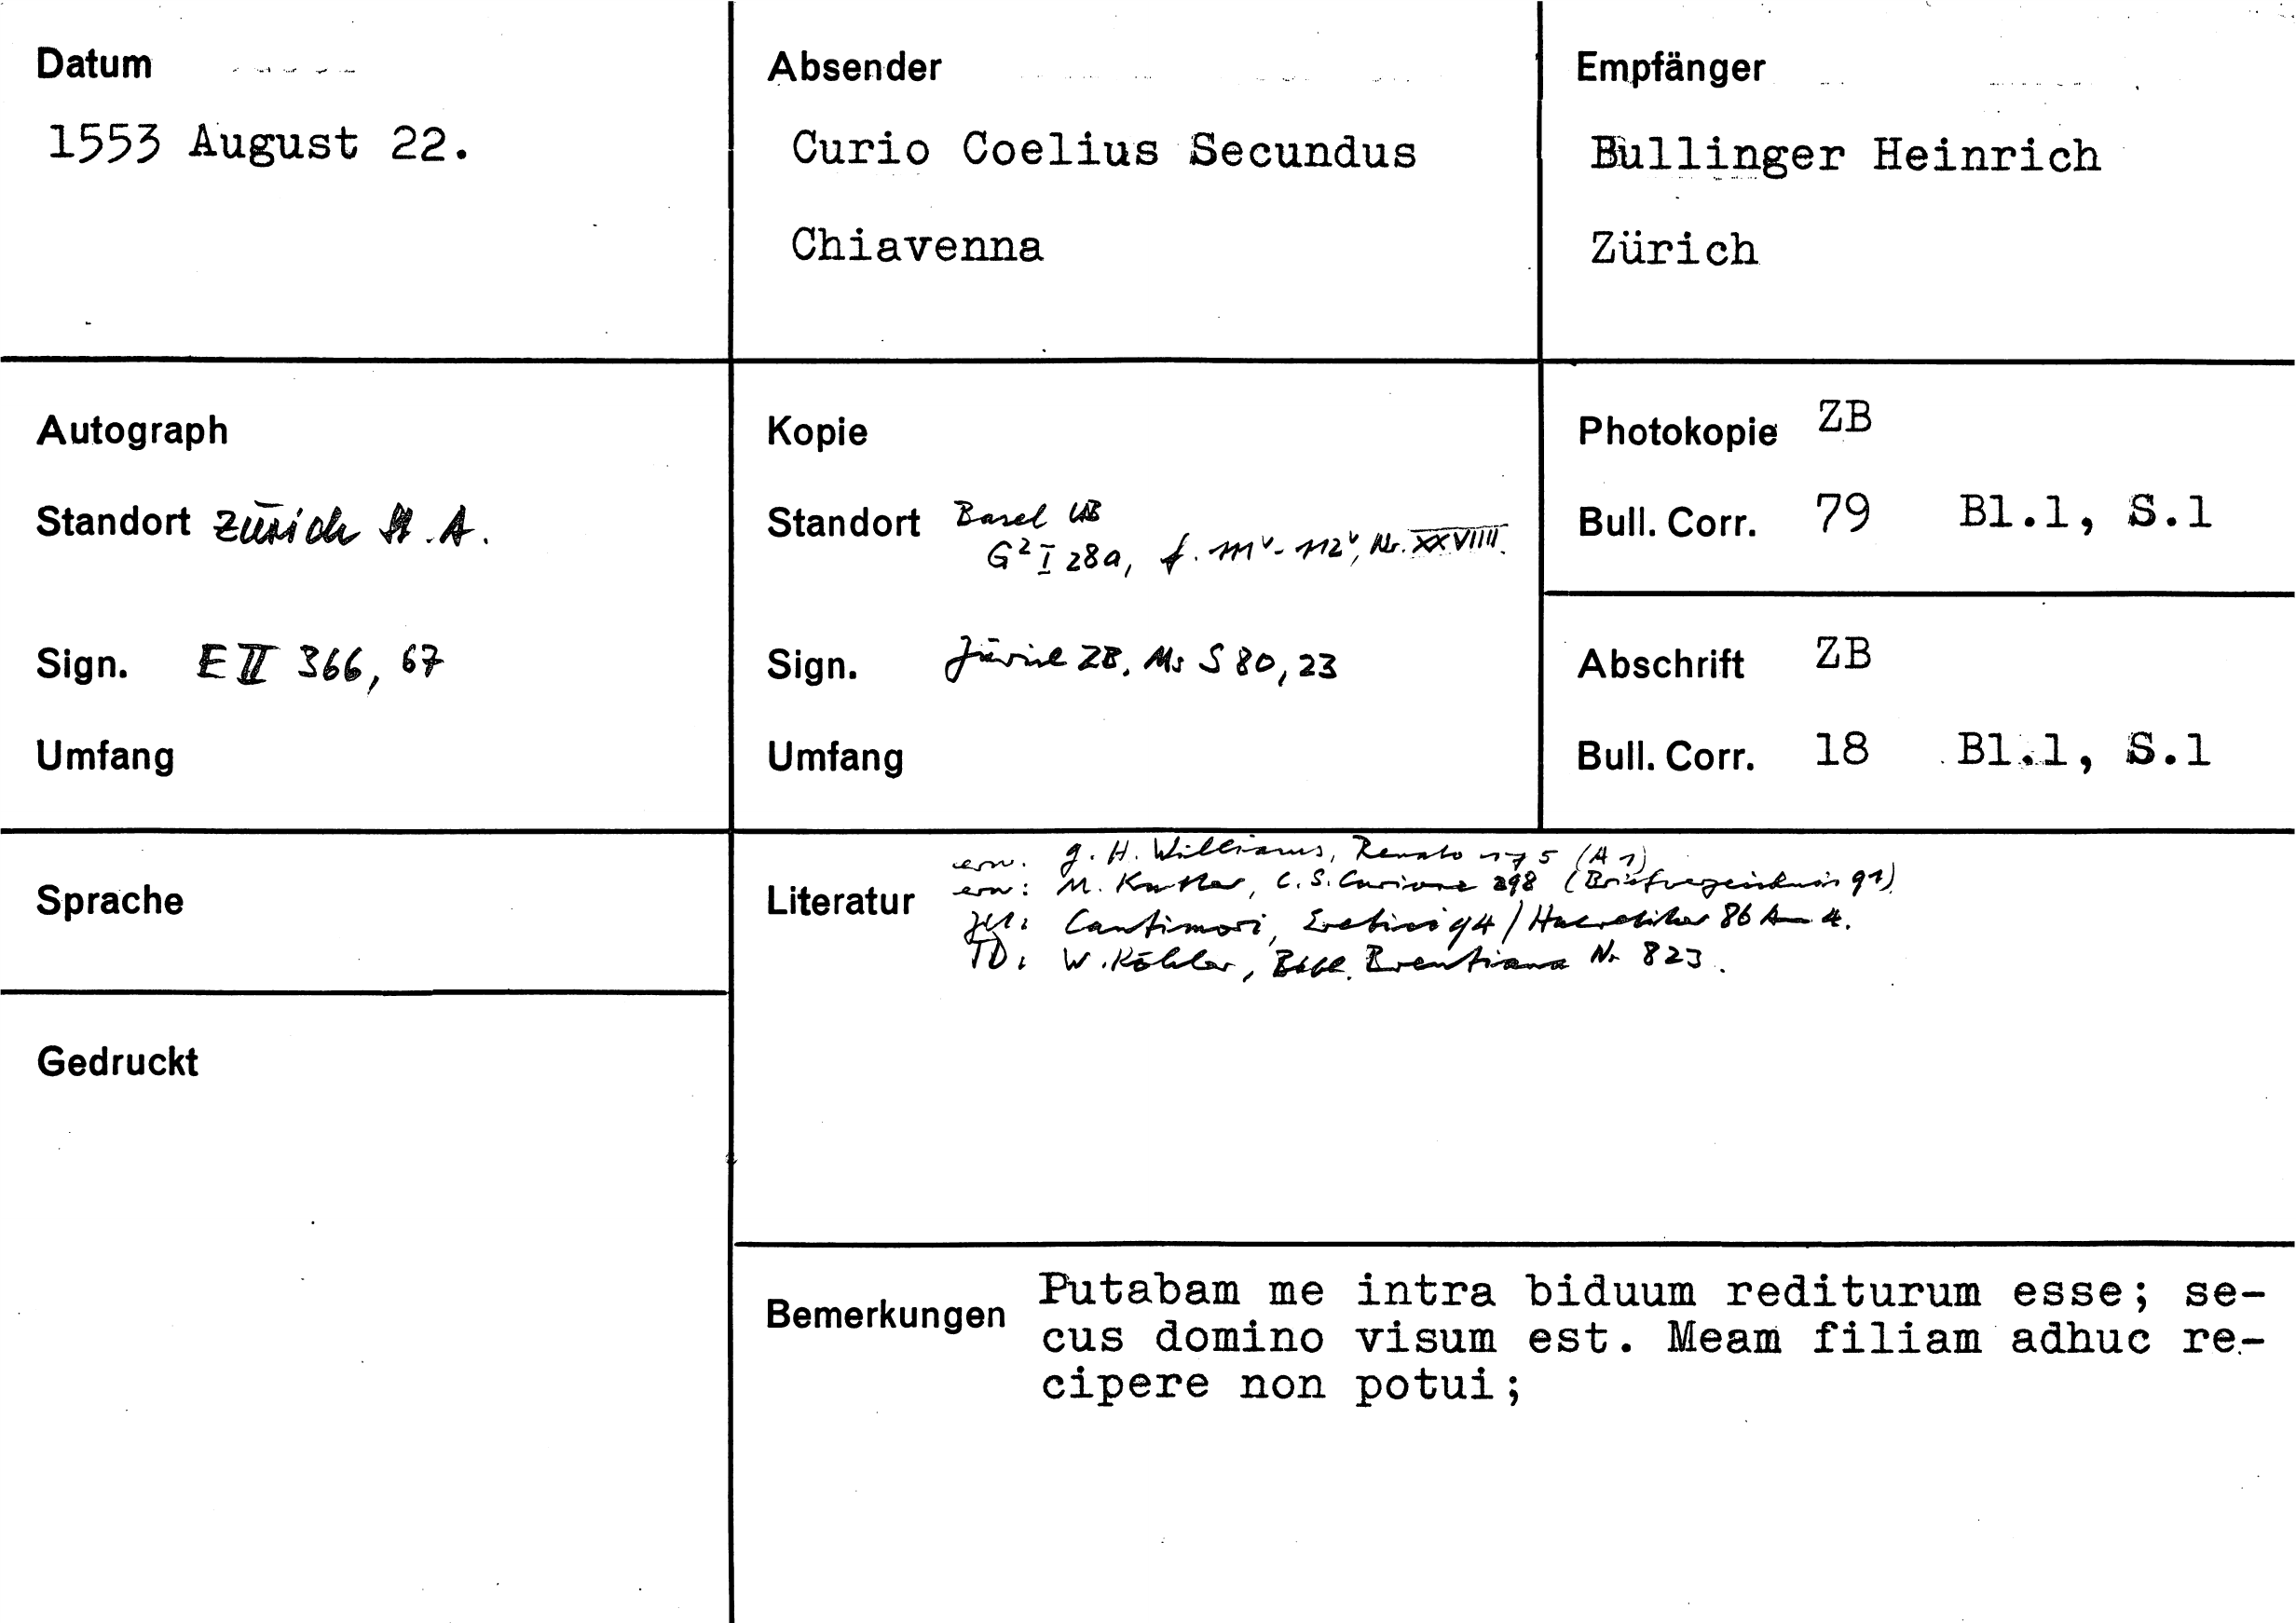 Datum
1553 August 22.
Absender
Curio Coelius Secundus
Chiavenna
Empfänger
Bullinger Heinrich
Zürich
Autograph
Standort Zürich St.A.
Sign. E II 366, 67
Umfang
Kopie
Standort Basel UB
G² I 28a, f. 111v-112v, Nr. XXVIIII.
Sign. Zürich ZB. Ms S 80, 23
Umfang
Photokopie ZB
Bull. Corr. 79 Bl.1, S.1
Abschrift ZB
Bull. Corr. 18 Bl.1, S.1
Sprache
Gedruckt
Literatur
erw. G. H. Williams, Renato 175 (A 1)
erw: M. Kutter, C.S. Curione 298 (Briefverzeichnis 91)
Cantimori, Eretici 94 / Haeretiker 86 Anm 4.
TD: W. Köhler, Bibl. Brentiana Nr 823.
Bemerkungen
Putabam me intra biduum rediturum esse; se-
cus domino visum est. Meam filiam adhuc re-
cipere non potui;